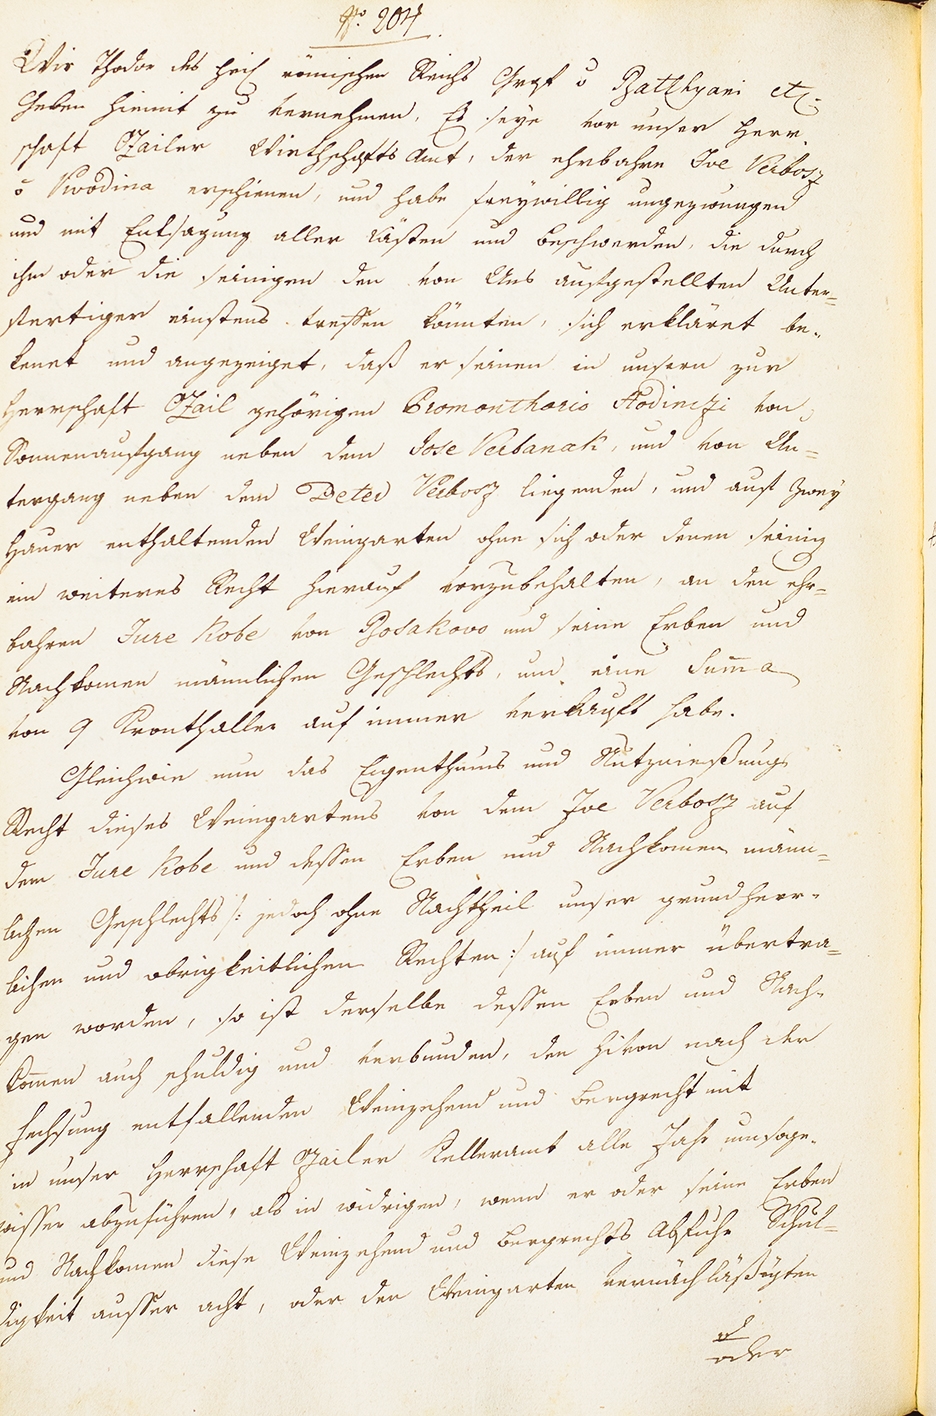 No. 204.
Wir Thodor des heil römischen Reichs Graf v Batthyani etc.
Geben hiemit zu vernehmen, Es seye vor unser Herr-
schaft Ozailer Wirthschafts Amt, der ehrbahre Ive Verbosz
v Svodina erschienen, und habe freywillig ungezwungen
und mit Entsagung aller Lästen und Beschwerden, die durch
ihm oder die seinigen den von Uns ausgestellten Unter-
fertiger einstens treffen könnten, sich erkläret be-
kenet und angezeiget, daß er seinen in unsern zur
Herrschaft Ozail gehörigen Promonthorio Hodinczi von
Sonnenaufgang neben dem Jose Verbanak, und von Un-
tergang neben dem Peter Verbosz liegenden, und aus zwey
Hauer enthaltenden Weingarten ohne sich oder denen seinig
ein weiteres Recht hierauf vorzubehalten, an den ehr-
bahren Jure Kobe von Bosakovo und seine Erben und
Nachkomen männlichen Geschlechts, um eine Suma
von 9 Kronthaller auf immer verkauft habe.
Gleichwie nun das Eigenthums und Nutznießungs
Recht dieses Weingartens von dem Ive Verbosz auf
dem Jure Kobe und dessen Erben und Nachkomen männ-
lichen Geschlechts /: jedoch ohne Nachtheil unser grundherr-
lichen und obrigkeitlichen Rechten :/ auf immer übertra-
gen worden, so ist derselbe dessen Erben und Nach-
komen auch schuldig und verbunden, den hievon nach der
Fechsung entfallenden Weinzehend und Bergrecht mit
in unser Herrschaft Ozailer Kelleramt alle Jahr umsoge-
wisser abzuführen, als in widrigen, wenn er oder seine Erben
und Nachkomen diese Weinzehend und Bergrechts Abfuhr Schul-
digkeit ausser acht, oder den Weingarten vernachläßigten
oder